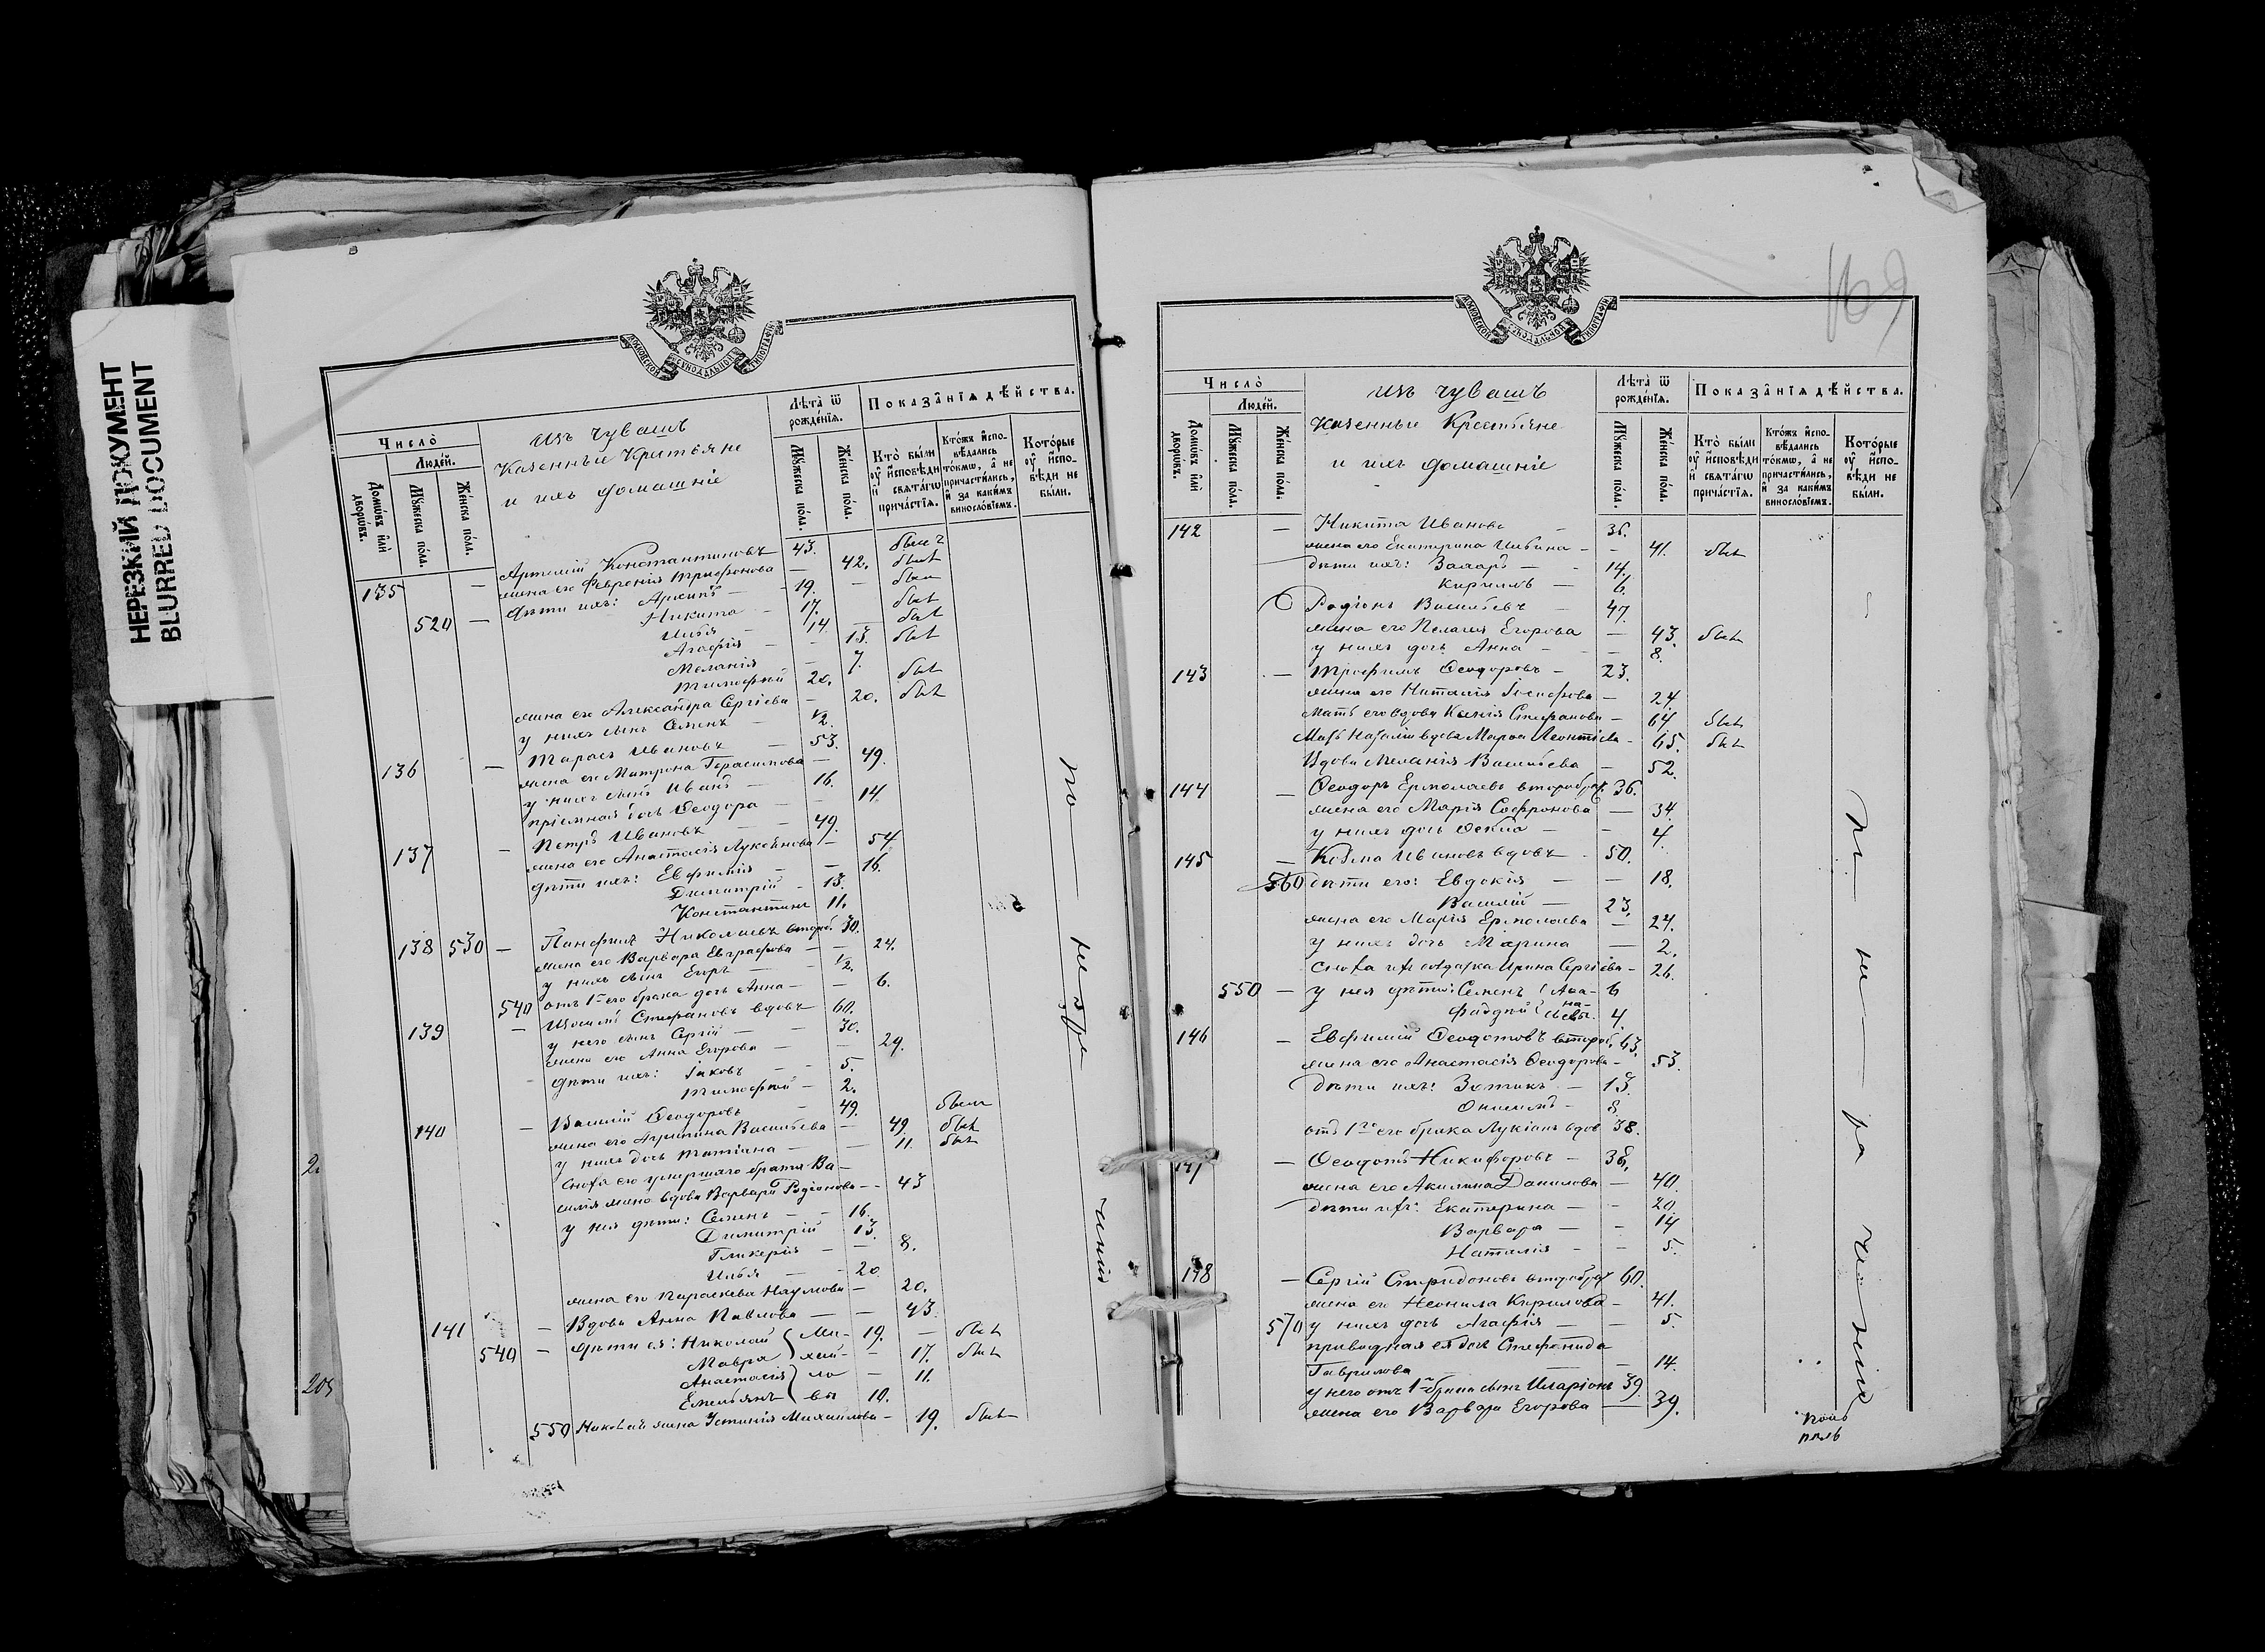 НЕРЕЗКИЙ ДОКУМЕНТ
BLURRED DOCUMENT
МОСКОВСКОЙ СѴНОДАЛЬНОЙ ТИПОГРАФІИ
Число̀
Людей.
Домѡвъ и҆лѝ дворѡвъ.
Мꙋ́жеска по́ла.
Же́нска по́ла.
Изъ чувашъ
Казенные Кретьяне
и ихъ домашніе
Лѣта̀ ѿ рожде́нїѧ.
Мꙋ́жеска по́ла.
Же́нска по́ла.
Показа̑нїѧ дѣ́йства.
Кто̀ бы́ли ᲂу҆ и҆сповѣди и҆ свѧта́гѡ причастїѧ.
Кто́жъ и҆спо-вѣдались то́кмѡ, а҆ не причасти́лись, и҆ за каки́мъ винослѡ́вїемъ.
Кото́рые ᲂу҆ и҆спо-вѣди не бы́ли.
135 — Артемій Константиновъ 43. былъ
жена его Феврония Трифонова — 42. был
520 — дѣти ихъ: Архипъ — 19. — был
Никита — 17. был
Илья — 14. — был
Агафія — 13. был
Меланія — 7.
Тимофей 20. был
жена его Александра Сергіева — 20. был
у нихъ сынъ Семенъ — 1/2.
136 — Тарасъ Ивановъ — 53.
жена его Матрона Герасимова — 49.
у нихъ сынъ Иванъ — 16.
пріемная дочь Ѳеодора — — 14.
137 — Петръ Ивановъ — 49.
жена его Анастасія Лукоянова — 54.
дѣти ихъ: Евфимія — — 16.
Димитрій — 13.
Константинъ 11.
138 530 — Панфилъ Николаевъ втораб. 30.
жена его Варвара Евграфова — — 24.
у нихъ сынъ Егоръ — — 1/2.
540 отъ 1го его брака дочь Анна — — 6.
139 — Стефановъ вдовъ 60.
у него сынъ Сергій — — 30.
жена его Анна Егорова — — 29.
дѣти ихъ: Іаковъ — — 5.
Тимофей — 2.
140 — Василій Ѳеодоровъ — 49. былъ
жена его Агрипина Васильева — 49. был
у нихъ дочь Татіана — — 11. был
сноха его умершаго брата Ва-
силія жена вдова Варвара Родіонова — — 43
у нея дѣти: Семенъ — — 16.
Димитрій 13.
Гликерія — — 8.
Илья — — 20
жена его Параскева Наумова — 20.
141 — Вдова Анна Павлова — — 43.
540 — дѣти ея: Николай Ми- 19. — был
Мавра хай- — 17. был
Анастасія ло — 11.
Емельянъ вы 10.
550 Николай жена Устинія Михайлова — 19. был
по — не ра
ченію
2.
205
169
Число̀
Людей.
Домѡвъ и҆лѝ дворѡвъ.
Мꙋ́жеска по́ла.
Же́нска по́ла.
изъ чувашъ
Казенные Крестьяне
и ихъ домашніе
Лѣта̀ ѿ рожде́нїѧ.
Мꙋ́жеска по́ла.
Же́нска по́ла.
Показа̑нїѧ дѣ́йства.
Кто̀ бы́ли ᲂу҆ и҆сповѣди и҆ свѧта́гѡ причастїѧ.
Кто́жъ и҆спо-вѣдались то́кмѡ, а҆ не причасти́лись, и҆ за каки́мъ винослѡ́вїемъ.
Кото́рые ᲂу҆ и҆спо-вѣди не бы́ли.
142 — Никита Ивановъ — 36.
жена его Екатерина Ильина — — 41. был
дѣти ихъ: — — 14.
Кирилъ — 6.
Родіонъ Васильевъ — 47.
жена его Пелагея Егорова — 43. был
у нихъ дочь Анна — — 8.
143 — Трофимъ Ѳеодоровъ — 23.
жена его Наталія Іосифова — 24.
Мать его вдова Ксенія Стефанова — 64 был
Мать Наталіи вдова Марѳа Леонтіева — 65. был
Вдова Меланія Васильева — 52.
144 — Ѳеодоръ Ермолаевъ второбрач. 36.
жена его Марія Софронова — 34.
у нихъ дочь Ѳекла — — 4.
145 — Козма Ивановъ вдовъ — 50.
560 дѣти его: Евдокія — — 18.
Василій — 23.
жена его Марія Ермолаева — 24.
у нихъ дочь Марина — 2.
сноха ихъ солдатка Ирина Сергіева — 26.
550 — у нея дѣти: Семенъ Афа- 6
Фаддей на-сьевы. 4.
146 — Евфимій Ѳеодотовъ втораб. 63.
жена его Анастасія Ѳеодорова — 53.
Дѣти ихъ: Зотикъ — 13.
Онисимъ — 8.
отъ 1го его брака Лукіанъ вдов 38.
147 — Ѳеодотъ Никифоровъ — 38.
жена его Акилина Данилова — 40.
дѣти ихъ: Екатерина — — 20.
Варвара — — 14
Наталія — — 5.
148 — Сергій Спиридоновъ второбрач 60.
жена его Неонила Кирилова — 41.
570 у нихъ дочь Агафія — — 5.
приводная ея дочь Стефанида
Гаврилова — — 14.
у него отъ 1го брака сынъ Иларіонъ 39.
жена его Варвара Егорова — 39.
по — не — ра чению